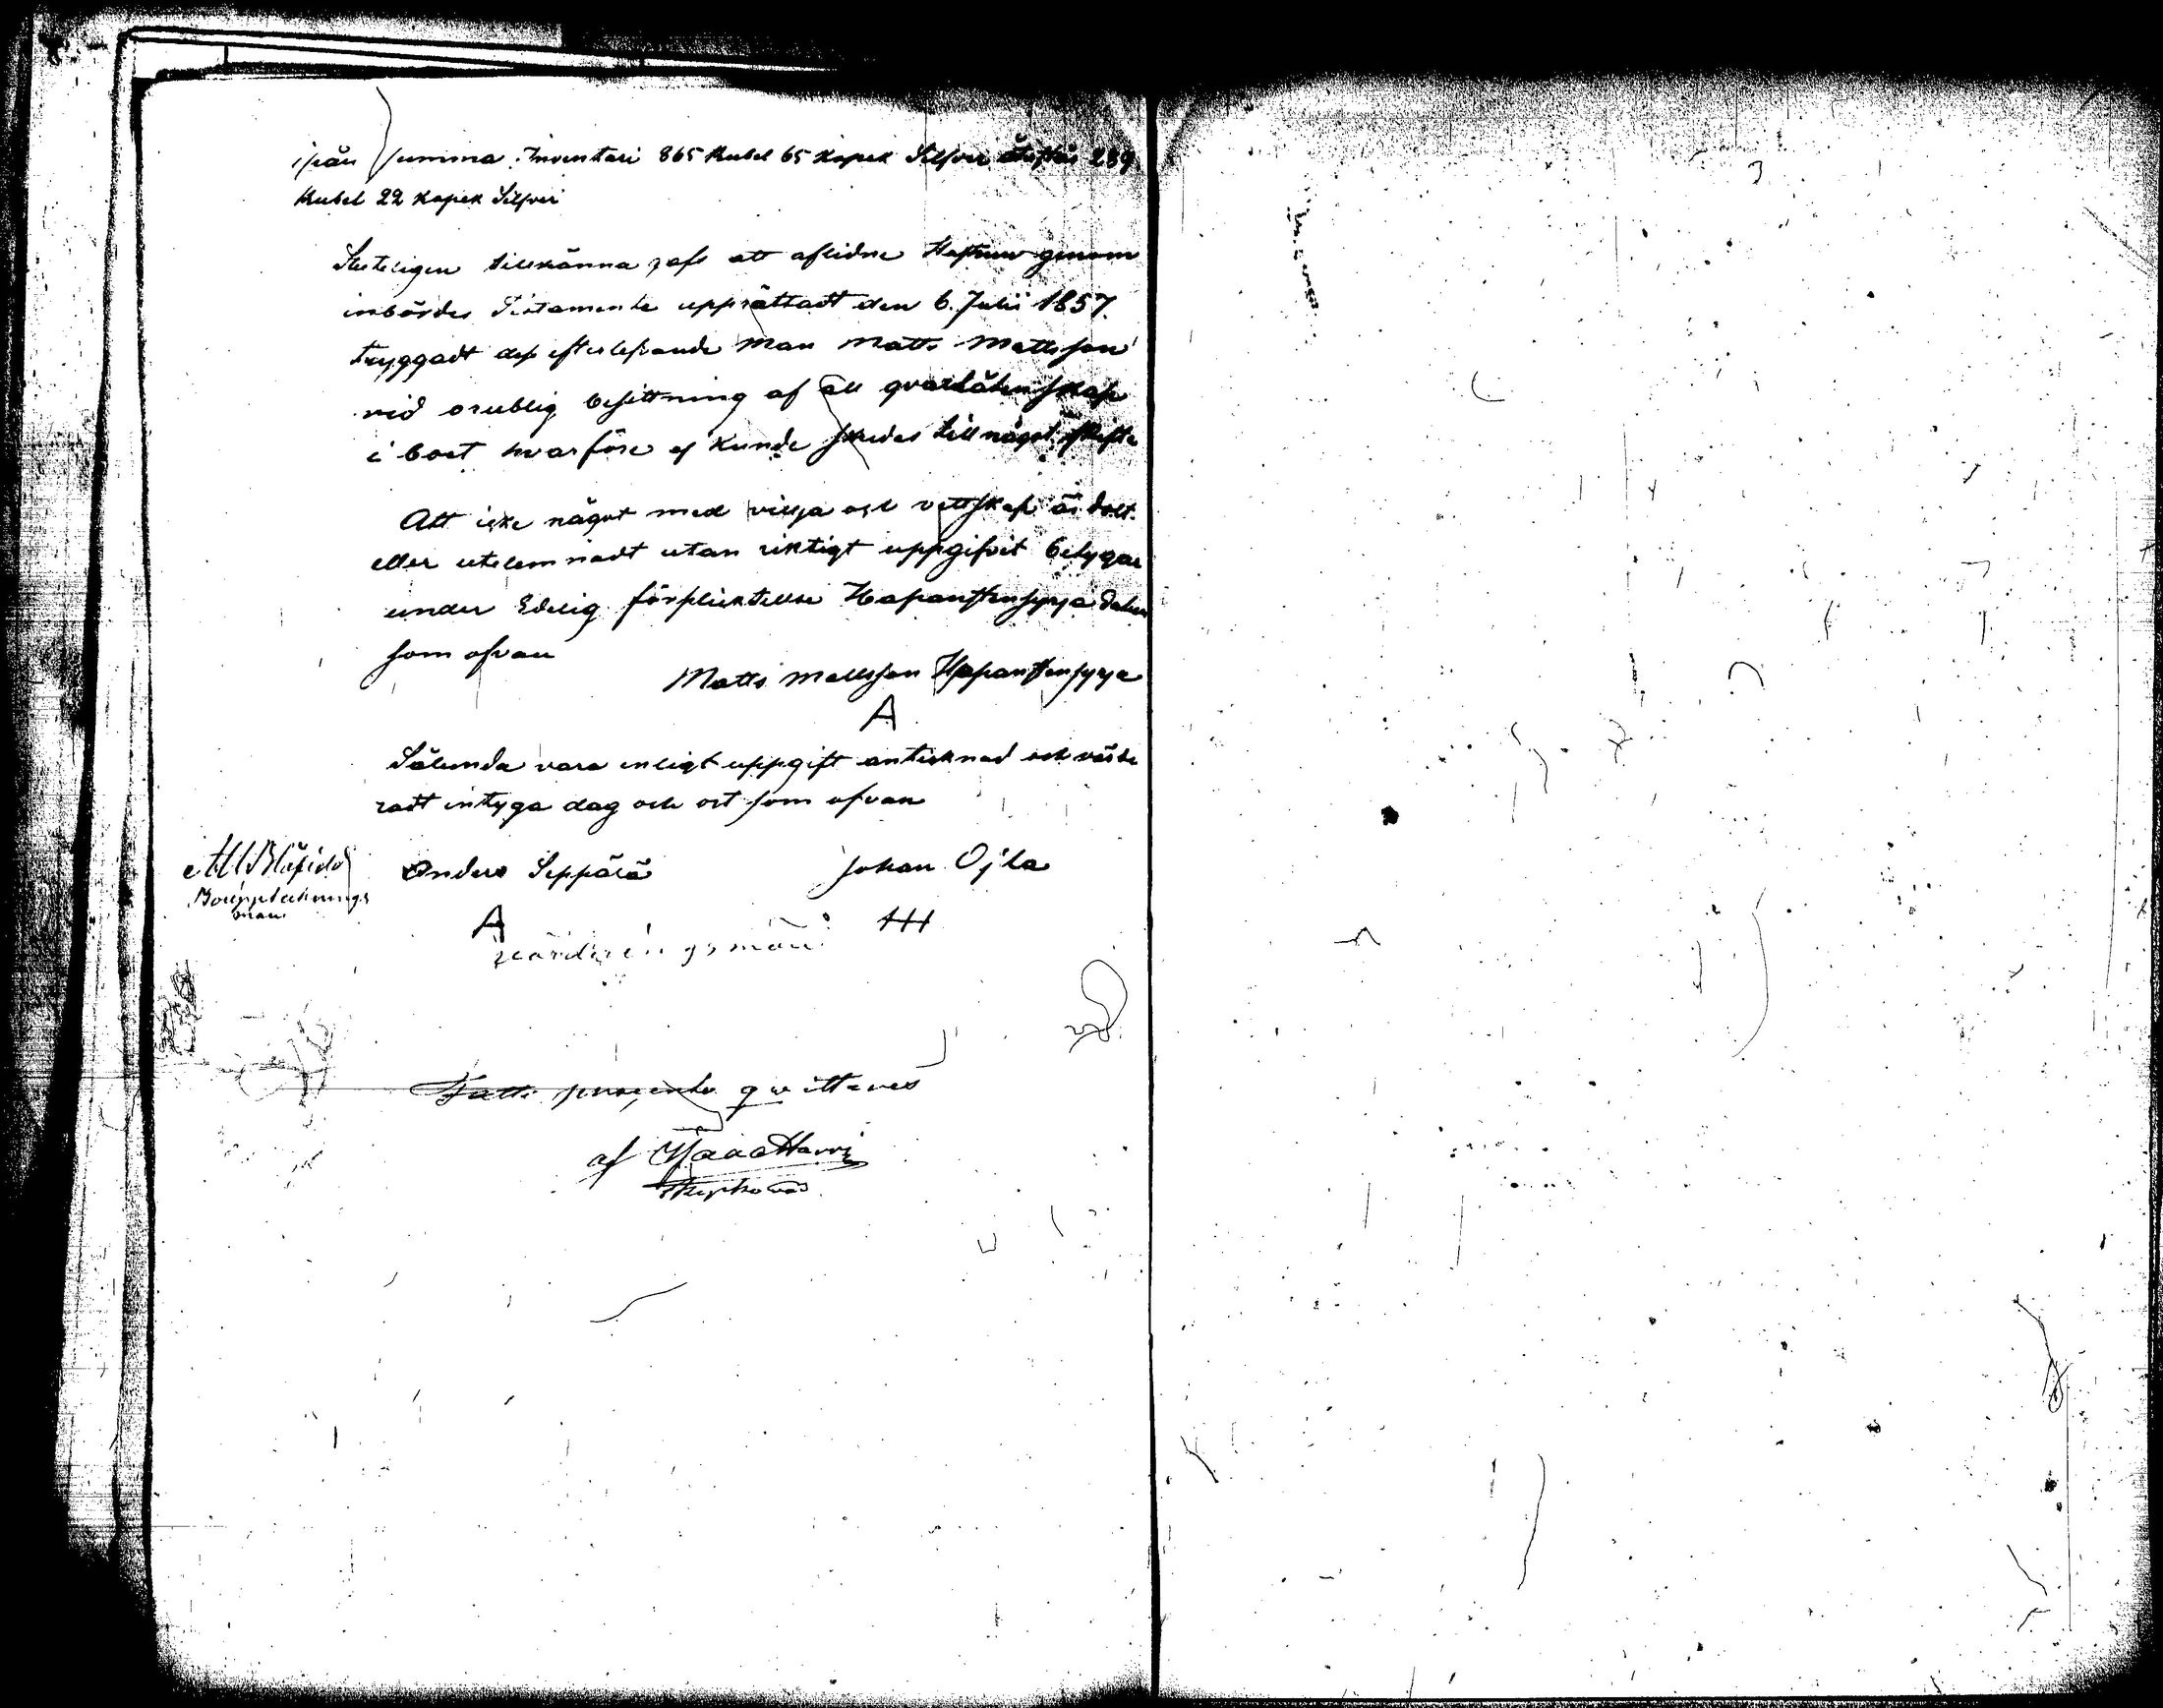 ifrån summa Inventari 865 Rubel 65 kopek Silfver återstår 289
Rubel 22 kopek Silfver
Sluteligen tillkänna gafs att aflidne Hustrun genom
inbördes Testamente upprättadt den 6. Julii 1857.
tryggadt dess efterlefvande Man Matts Mattsson
vid orublig besittning af all qvarlåtenskap
i boet hvarföre ej kunde skrides till något skifte
Att icke något med vilja och vettskap är dolt
eller utelemnadt utan riktigt uppgifvit betygar
under Edelig förpliektellse Hapaustensyrjä datum
som ofvan
Matts Mattsson Hapaustensyrjä
A
Sålunda vara enligt uppgift antecknad och värde
radt intyga dag och ort som ofvan
Bouppteknings
man
Anders Seppärä Johan Ojla
A
värderingsmän
Fatti procento qvitteras
af